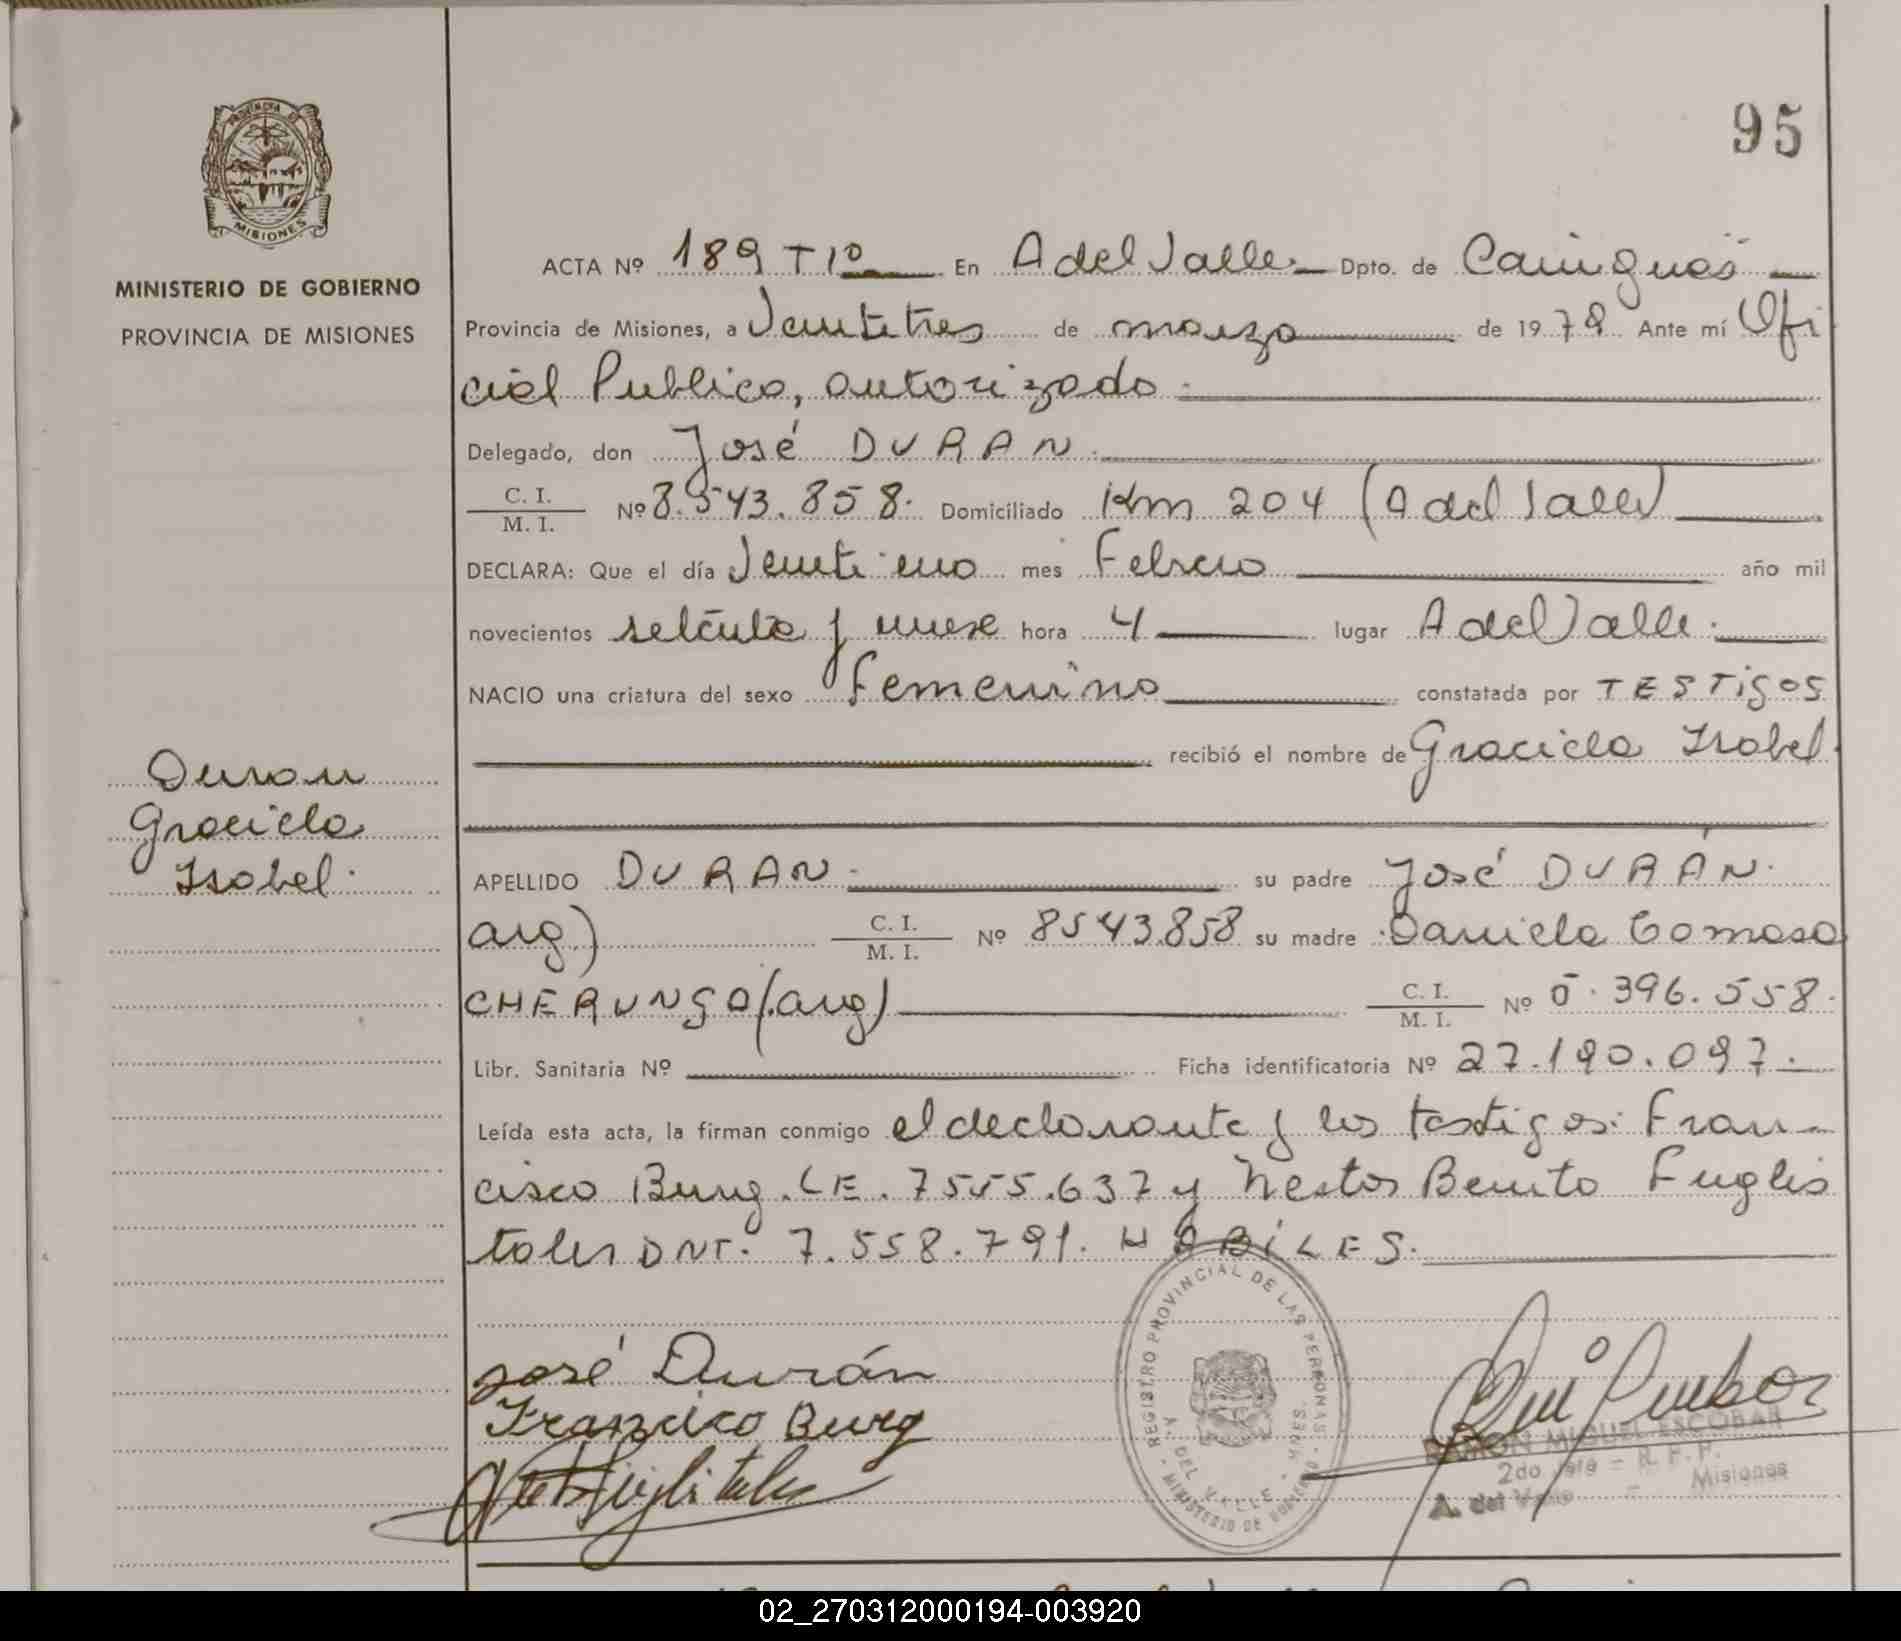 95
PROVINCIA DE
MISIONES
MINISTERIO DE GOBIERNO
PROVINCIA DE MISIONES
ACTA Nº 189 Tº 1º En A del Valle Dpto. de Cainguás
Provincia de Misiones, a Veintitres de marzo de 1979 Ante mí Ofi
cial Publico, autorizado.
Delegado, don José DURAN.
C. I.
M. I. Nº 8.543.858. Domiciliado Km 204 (A del Valle)
DECLARA: Que el día Veintiuno mes Febrero año mil
novecientos setenta y nueve hora 4 lugar A del Valle.
NACIO una criatura del sexo femenino constatada por TESTIGOS
recibió el nombre de Graciela Isabel.
Duran
Graciela
Isabel.
APELLIDO DURAN. su padre José DURÁN.
arg.) C. I.
M. I. Nº 8543.858 su madre Daniela Tomasa
CHERUNGO (arg) C. I.
M. I. Nº 6.396.558.
Libr. Sanitaria Nº Ficha identificatoria Nº 27.190.097.
Leída esta acta, la firman conmigo el declarante y los testigos: Fran-
cisco Burg. LE. 7555.637 y Nestor Benito Fuglis
taler DNI. 7.558.791. HABILES.
José Durán
Francisco Burg
REGISTRO PROVINCIAL DE LAS PERSONAS - MINISTERIO DE GOBIERNO
A. DEL VALLE - MNES.
RAMON MIGUEL ESCOBAR
2do Jefe - R. P. P.
A. del Valle - Misiones
02_270312000194-003920